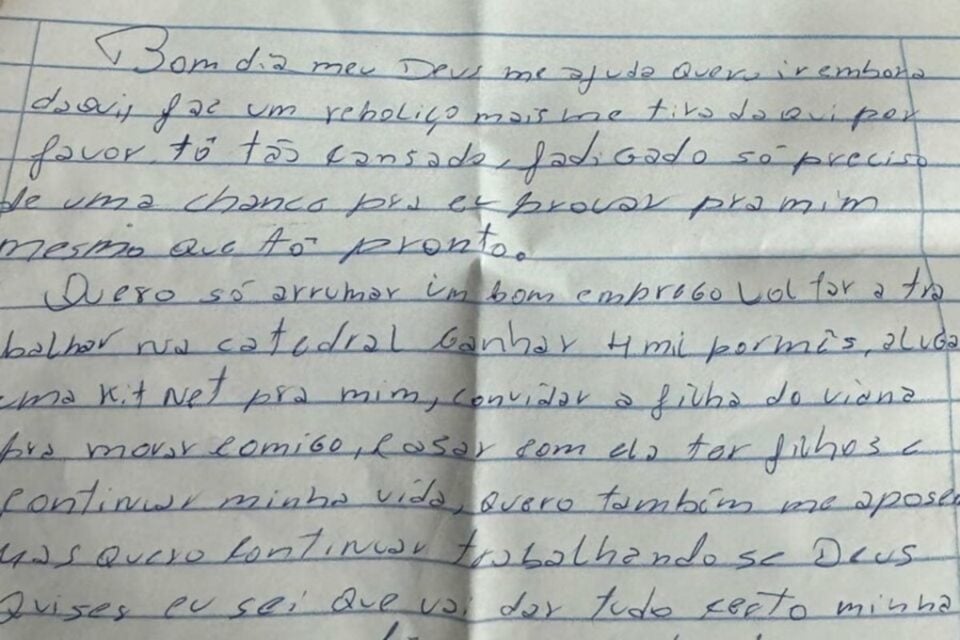 Bom dia meu Deus me ajuda quero ir embora
daqui, faz um reboliço mais me tira daqui por
favor, tô tão cansado, fadigado só preciso
de uma chance pra eu provar pra mim
mesmo que tô pronto.
Quero só arrumar um bom emprego voltar a tra
balhar na catedral Ganhar 4 mil por mês, aluga
uma Kit Net pra mim, convidar a filha do viana
pra morar comigo, casar com ela ter filhos e
continuar minha vida, quero também me aposen
mas quero continuar trabalhando se Deus
quises eu sei que vai dar tudo certo minha